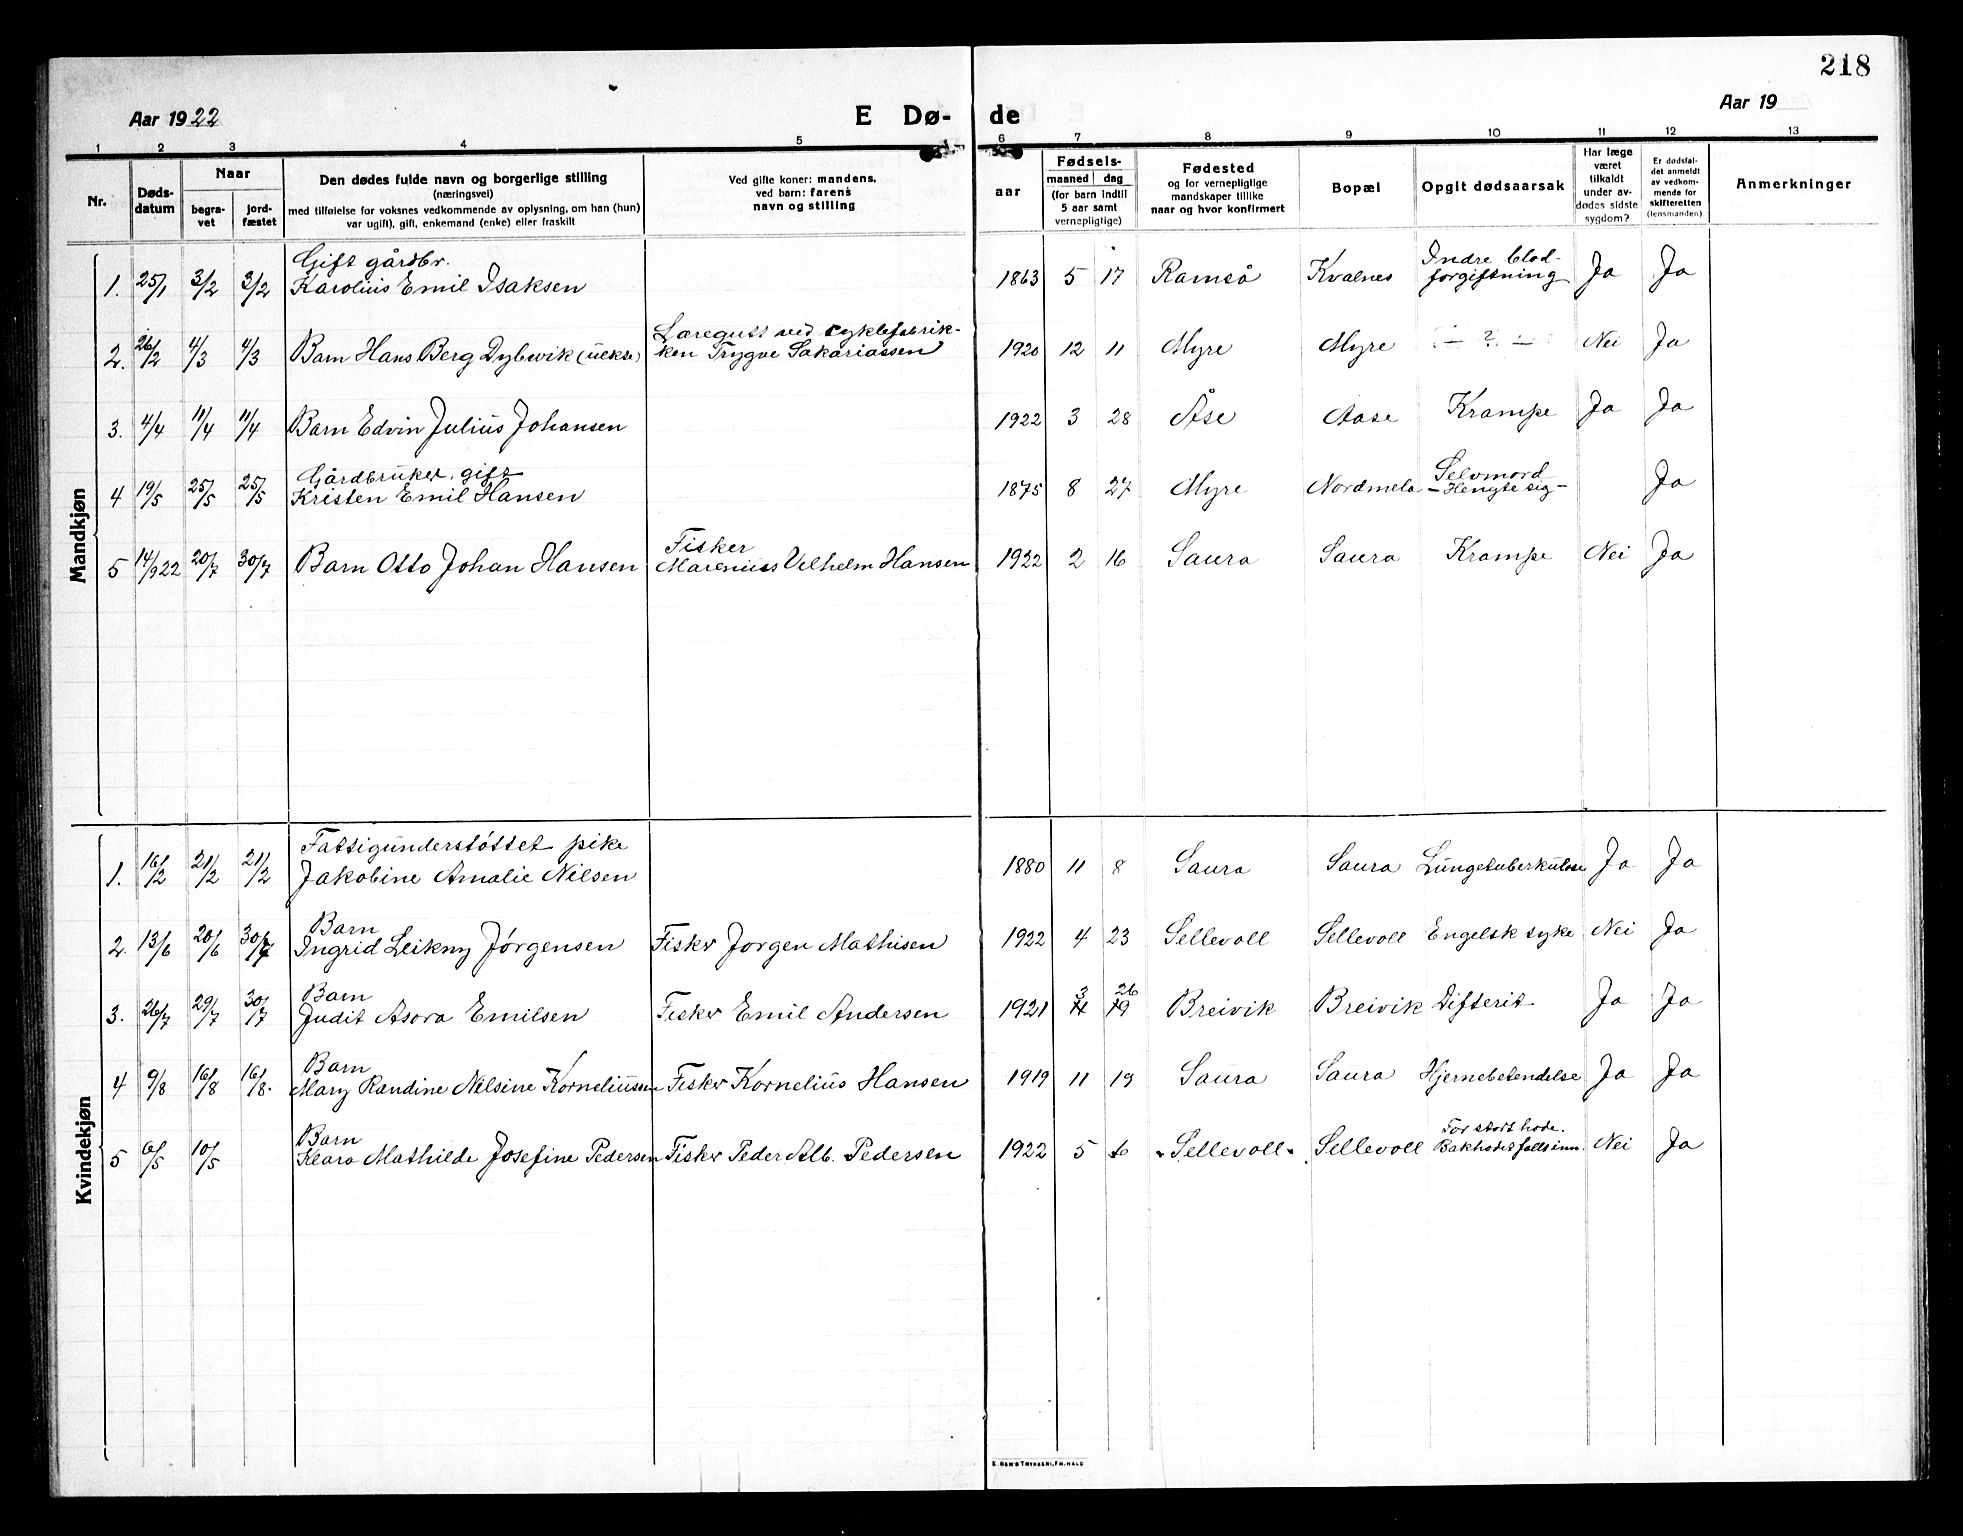 218
Aar 1922
E Dø-
de
Aar 19
1 2 3 4 5 6 7 8 9 10 11 12 13
Nr.
Døds-
datum
Naar
begra-
vet
jord-
fæstet
Den dødes fulde navn og borgerlige stilling
(næringsvei)
med tilføielse for voksnes vedkommende av oplysning, om han (hun)
var ugift), gift, enkemand (enke) eller fraskilt
Ved gifte koner: mandens,
ved barn: farens
navn og stilling
aar
Fødsels-
maaned dag
(for barn indtil
5 aar samt
vernepligtige)
Fødested
og for vernepligtige
mandskaper tillike
naar og hvor konfirmert
Bopæl
Opgit dødsaarsak
Har læge
været
tilkaldt
under av-
dødes sidste
sygdom?
Er dødsfal-
det anmeldt
av vedkom-
mende for
skifteretten
(lensmanden)
Anmerkninger
Mandkjøn
Gift gårdbr.
1. 25/1 3/2 3/2 Karolius Emil Isaksen 1863 5 17 Ramså Kvalnes Indre blod-
forgiftning Ja Ja
Læregutt ved cyklefabrik-
2. 26/2 4/3 4/3 Barn Hans Berg Dybwik (uekte) ken Trygve Sakariassen 1920 12 11 Myre Myre — ? — Nei Ja
3. 4/4 11/4 11/4 Barn Edvin Julius Johansen 1922 3 28 Åse Aase Krampe Ja Ja
Gårdbruker, gift
4 19/5 25/5 25/5 Kristen Emil Hansen 1875 8 27 Myre Nordmela Selvmord
– Hengte sig – Ja
Fisker
5 14/9 22 20/7 30/7 Barn Otto Johan Hansen Marenius Vilhelm Hansen 1922 2 16 Saura Saura Krampe Nei Ja
Kvindekjøn
Fattigunderstøttet pike
1. 16/2 21/2 21/2 Jakobine Amalie Nilsen 1880 11 8 Saura Saura Lungetuberkulose Ja Ja
Barn
2. 13/6 20/6 30/7 Ingrid Leikny Jørgensen Fisker Jørgen Mathisen 1922 4 23 Sellevoll Sellevoll Engelsk syke Nei Ja
Barn 3 26
3. 26/7 29/7 30/7 Judit Asora Emilsen Fisker Emil Andersen 1921 Breivik Breivik Difterit Ja Ja
Barn
4 9/8 16/8 16/8. Mary Randine Nilsine Korneliussen Fisker Kornelius Hansen 1919 11 19 Saura Saura Hjernebetendelse Ja Ja
Barn For stort hode.
5 6/5 10/5 Klara Mathilde Josefine Pedersen Fisker Peder Alb. Pedersen 1922 5 6 Sellevoll Sellevoll Bakhodet falt inn. Nei Ja
E. SEM'S TRYKKERI, FR.HALD